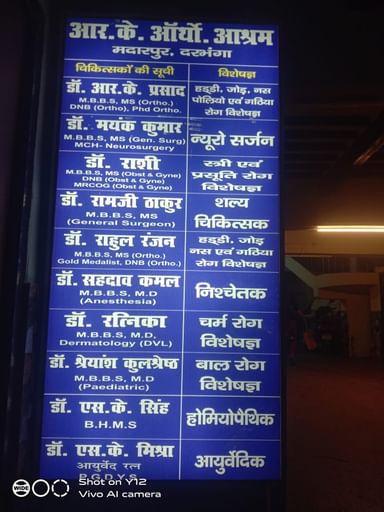 आर.के. ऑर्थो. आश्रम
मदारपुर, दरभंगा
चिकित्सकों की सूची
विशेषज्ञ
डॉ. आर.के. प्रसाद
M.B.B.S, MS (Ortho.)
DNB (Ortho), Phd Ortho.
हड्डी, जोड़, नस
पोलियो एवं गठिया
रोग विशेषज्ञ
डॉ. मयंक कुमार
M.B.B.S, MS (Gen. Surg)
MCH- Neurosurgery
न्यूरो सर्जन
डॉ. राशी
M.B.B.S, MS (Obst & Gyne)
DNB (Obst & Gyne)
MRCOG (Obst & Gyne)
स्त्री एवं
प्रसूति रोग
विशेषज्ञ
डॉ. रामजी ठाकुर
M.B.B.S, MS
(General Surgeon)
शल्य
चिकित्सक
डॉ. राहुल रंजन
M.B.B.S, MS (Ortho.)
Gold Medalist, DNB (Ortho.)
हड्डी, जोड़
नस एवं गठिया
रोग विशेषज्ञ
डॉ. सहदाव कमल
M.B.B.S, M.D
(Anesthesia)
निश्चेतक
डॉ. रत्निका
M.B.B.S, M.D.
Dermatology (DVL)
चर्म रोग
विशेषज्ञ
डॉ. श्रेयांश कुलश्रेष्ठ
M.B.B.S, M.D
(Paediatric)
बाल रोग
विशेषज्ञ
डॉ. एस.के. सिंह
B.H.M.S
होमियोपैथिक
डॉ. एस.के. मिश्रा
आयुर्वेद रत्न
आयुर्वेदिक
WIDE
Shot on Y12
Vivo AI camera